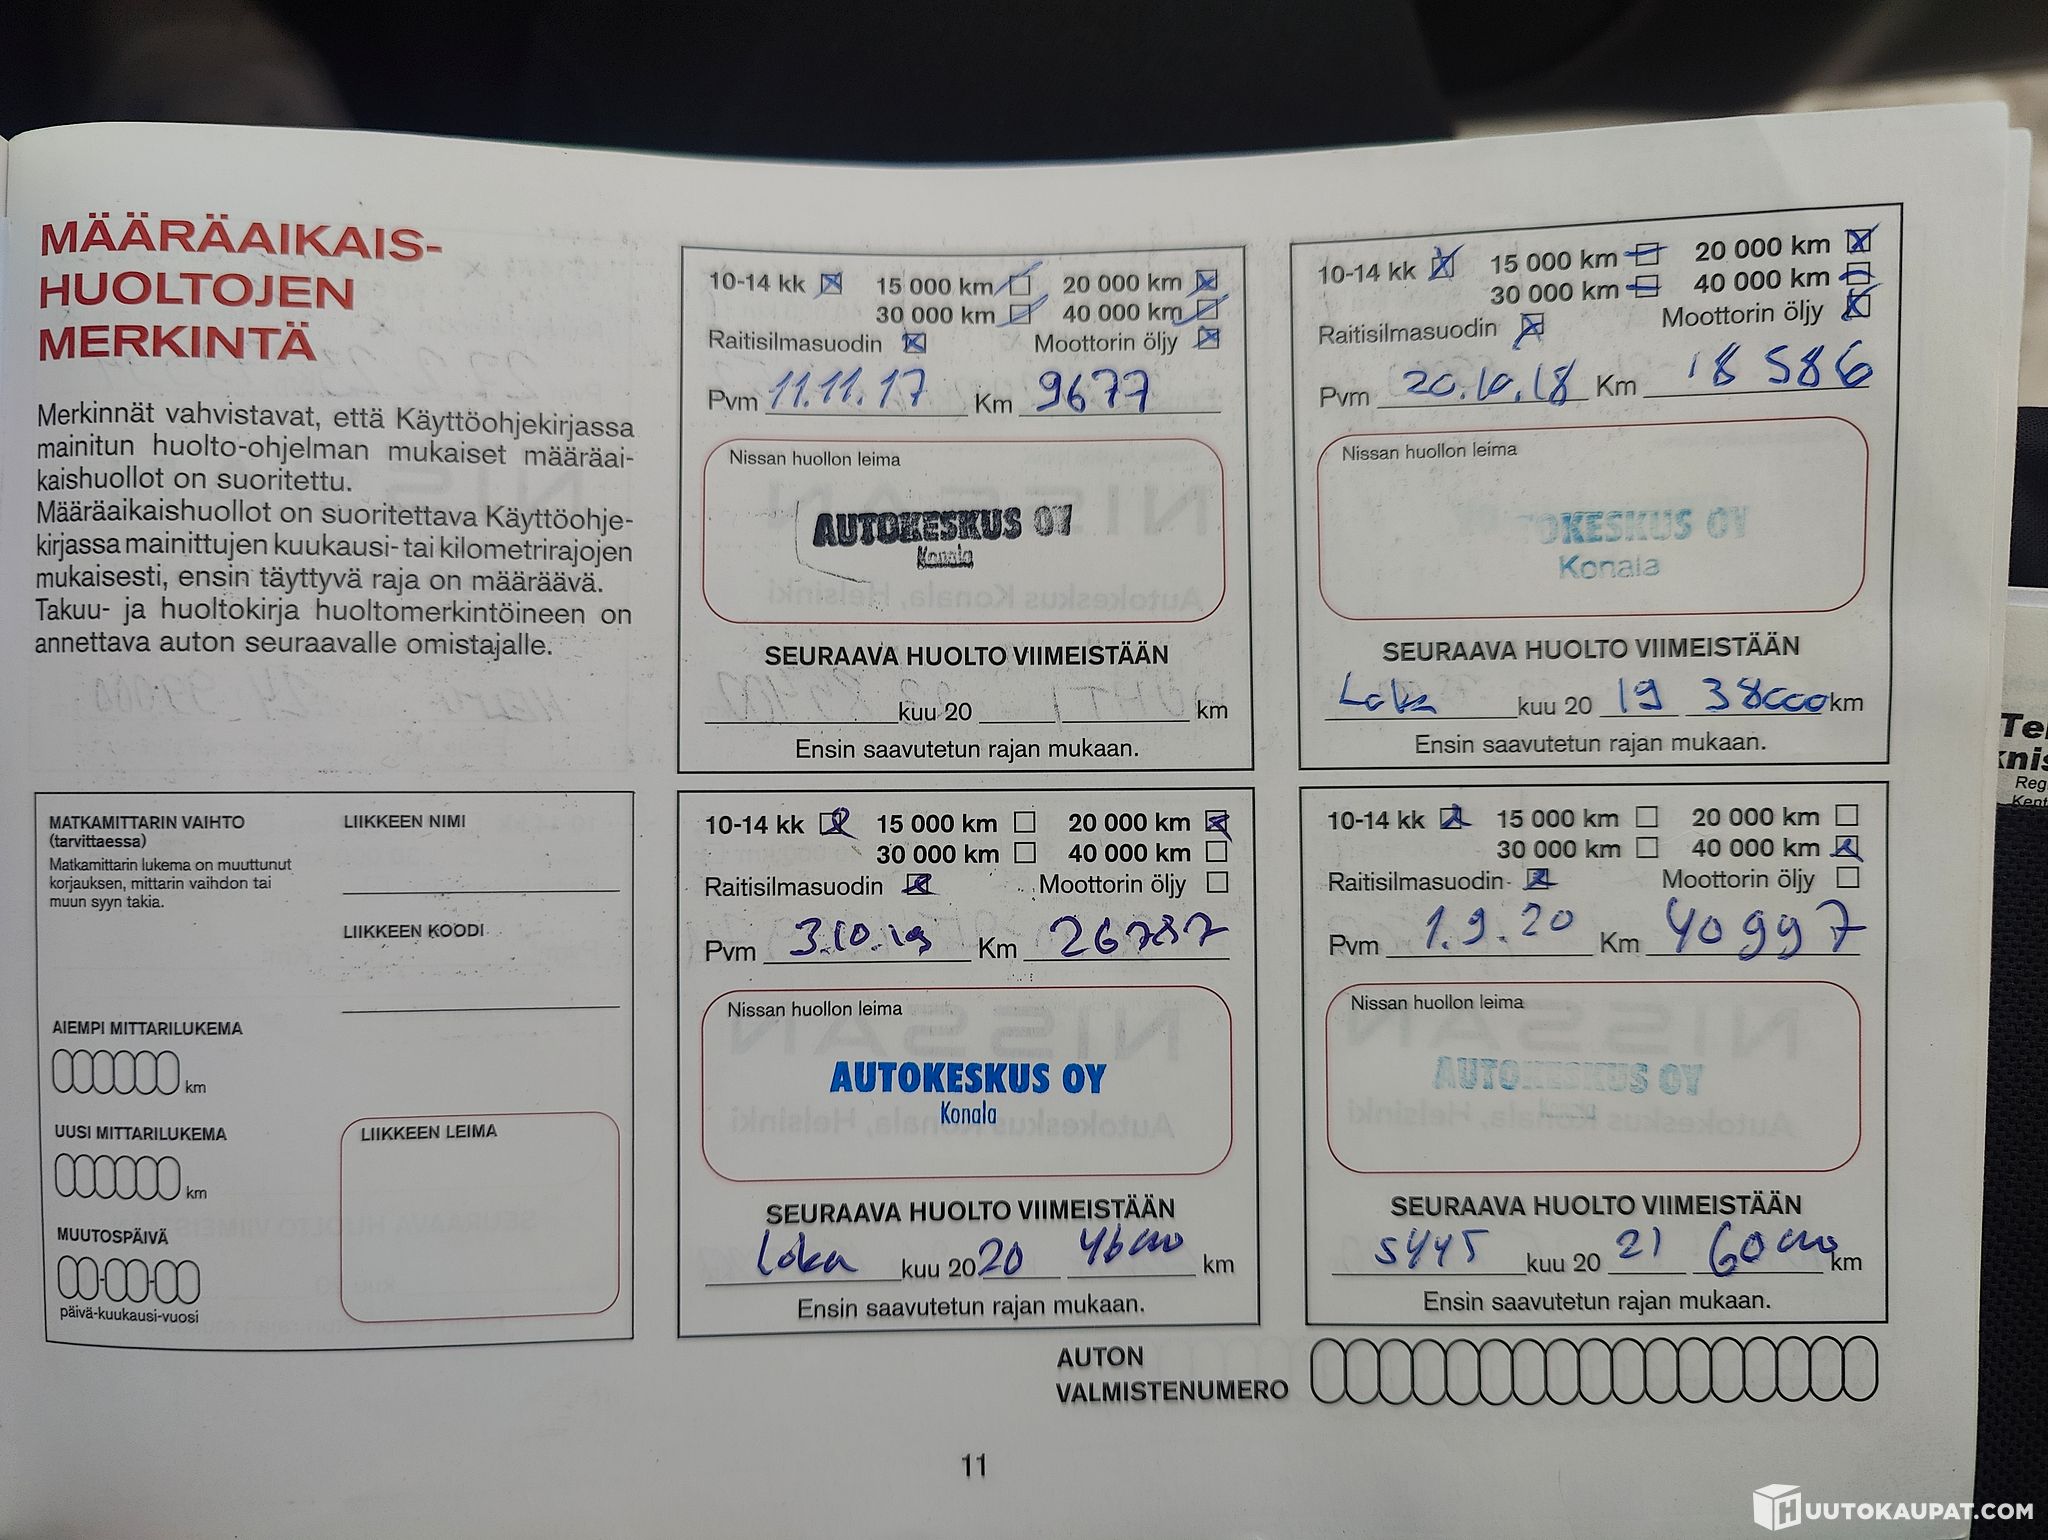 MÄÄRÄAIKAIS-
HUOLTOJEN
MERKINTÄ
Merkinnät vahvistavat, että Käyttöohjekirjassa
mainitun huolto-ohjelman mukaiset määräai-
kaishuollot on suoritettu.
Määräaikaishuollot on suoritettava Käyttöohje-
kirjassa mainittujen kuukausi- tai kilometrirajojen
mukaisesti, ensin täyttyvä raja on määräävä.
Takuu- ja huoltokirja huoltomerkintöineen on
annettava auton seuraavalle omistajalle.
MATKAMITTARIN VAIHTO
(tarvittaessa)
Matkamittarin lukema on muuttunut
korjauksen, mittarin vaihdon tai
muun syyn takia.
LIIKKEEN NIMI
LIIKKEEN KOODI
AIEMPI MITTARILUKEMA
km
UUSI MITTARILUKEMA
km
MUUTOSPÄIVÄ
päivä-kuukausi-vuosi
LIIKKEEN LEIMA
10-14 kk 15 000 km 20 000 km
30 000 km 40 000 km
Raitisilmasuodin Moottorin öljy
Pvm 11.11.17 Km 9677
Nissan huollon leima
AUTOKESKUS OY
Konala
SEURAAVA HUOLTO VIIMEISTÄÄN
kuu 20 km
Ensin saavutetun rajan mukaan.
10-14 kk 15 000 km 20 000 km
30 000 km 40 000 km
Raitisilmasuodin Moottorin öljy
Pvm 20.10.18 Km 18 586
Nissan huollon leima
AUTOKESKUS OY
Konala
SEURAAVA HUOLTO VIIMEISTÄÄN
Loka kuu 20 19 38000 km
Ensin saavutetun rajan mukaan.
10-14 kk 15 000 km 20 000 km
30 000 km 40 000 km
Raitisilmasuodin Moottorin öljy
Pvm 3.10.19 Km 26787
Nissan huollon leima
AUTOKESKUS OY
Konala
SEURAAVA HUOLTO VIIMEISTÄÄN
Loka kuu 20 20 46000 km
Ensin saavutetun rajan mukaan.
10-14 kk 15 000 km 20 000 km
30 000 km 40 000 km
Raitisilmasuodin Moottorin öljy
Pvm 1.9.20 Km 40997
Nissan huollon leima
AUTOKESKUS OY
Konala
SEURAAVA HUOLTO VIIMEISTÄÄN
SYYS kuu 20 21 60000 km
Ensin saavutetun rajan mukaan.
AUTON
VALMISTENUMERO
11
HUUTOKAUPAT.COM